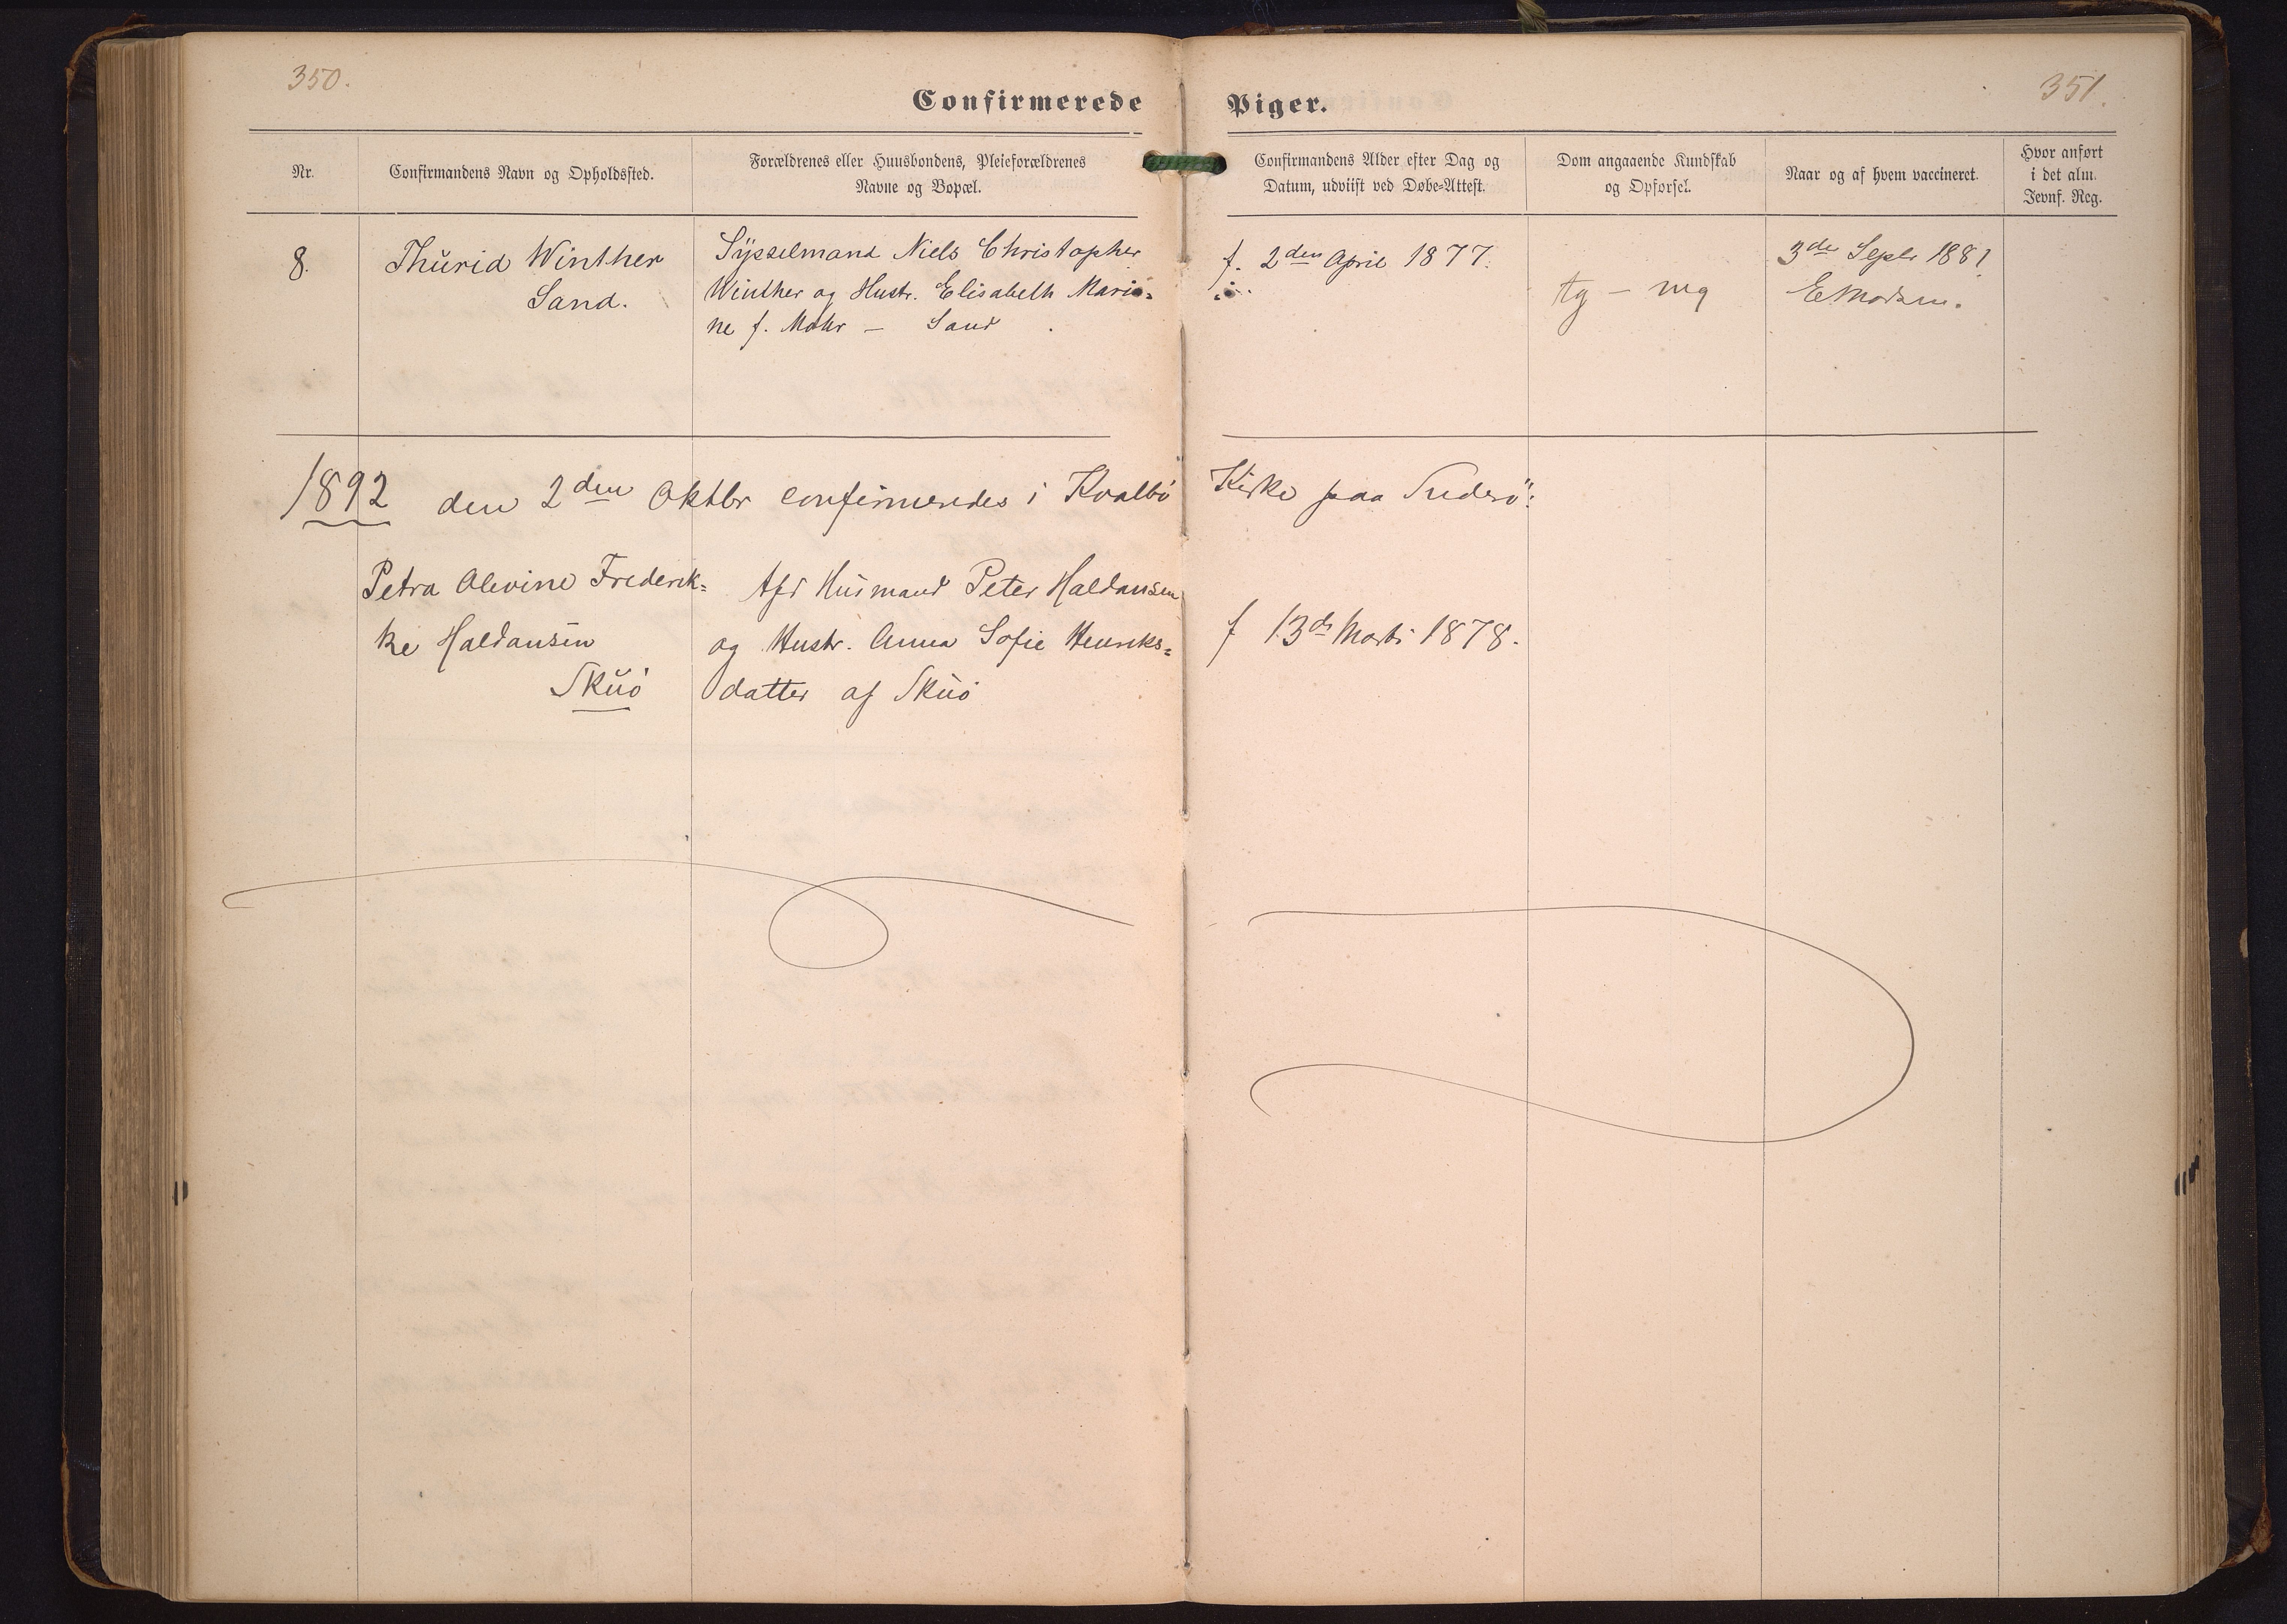 350.
351.
Confirmerede Piger.
Nr.
Confirmandens Navn og Opholdssted.
Forældrenes eller Huusbondens, Pleieforældrenes
Navne og Bopæl.
Confirmandens Alder efter Dag og
Datum, udviist ved Døbe-Attest.
Dom angaaende Kundskab
og Opførsel.
Naar og af hvem vaccineret.
Hvor anført
i det alm.
Jevnf. Reg.
8.
Thurid Winther
Sand.
Sysselmand Niels Christopher
Winther og Hustr. Elisabeth Mari-
ne f. Mohr – Sand
f. 2den April 1877.
tg – mg
3de Septr 1881
1892 den 2den Oktbr confirmeredes i Kvalbø Kirke paa Suderø:
Petra Olevine Frederik-
ke Haldansen
Skuø
Afd Husmand Peter Haldansen
og Hustr. Anna Sofie Henriks-
datter af Skuø
f 13de Marts 1878.